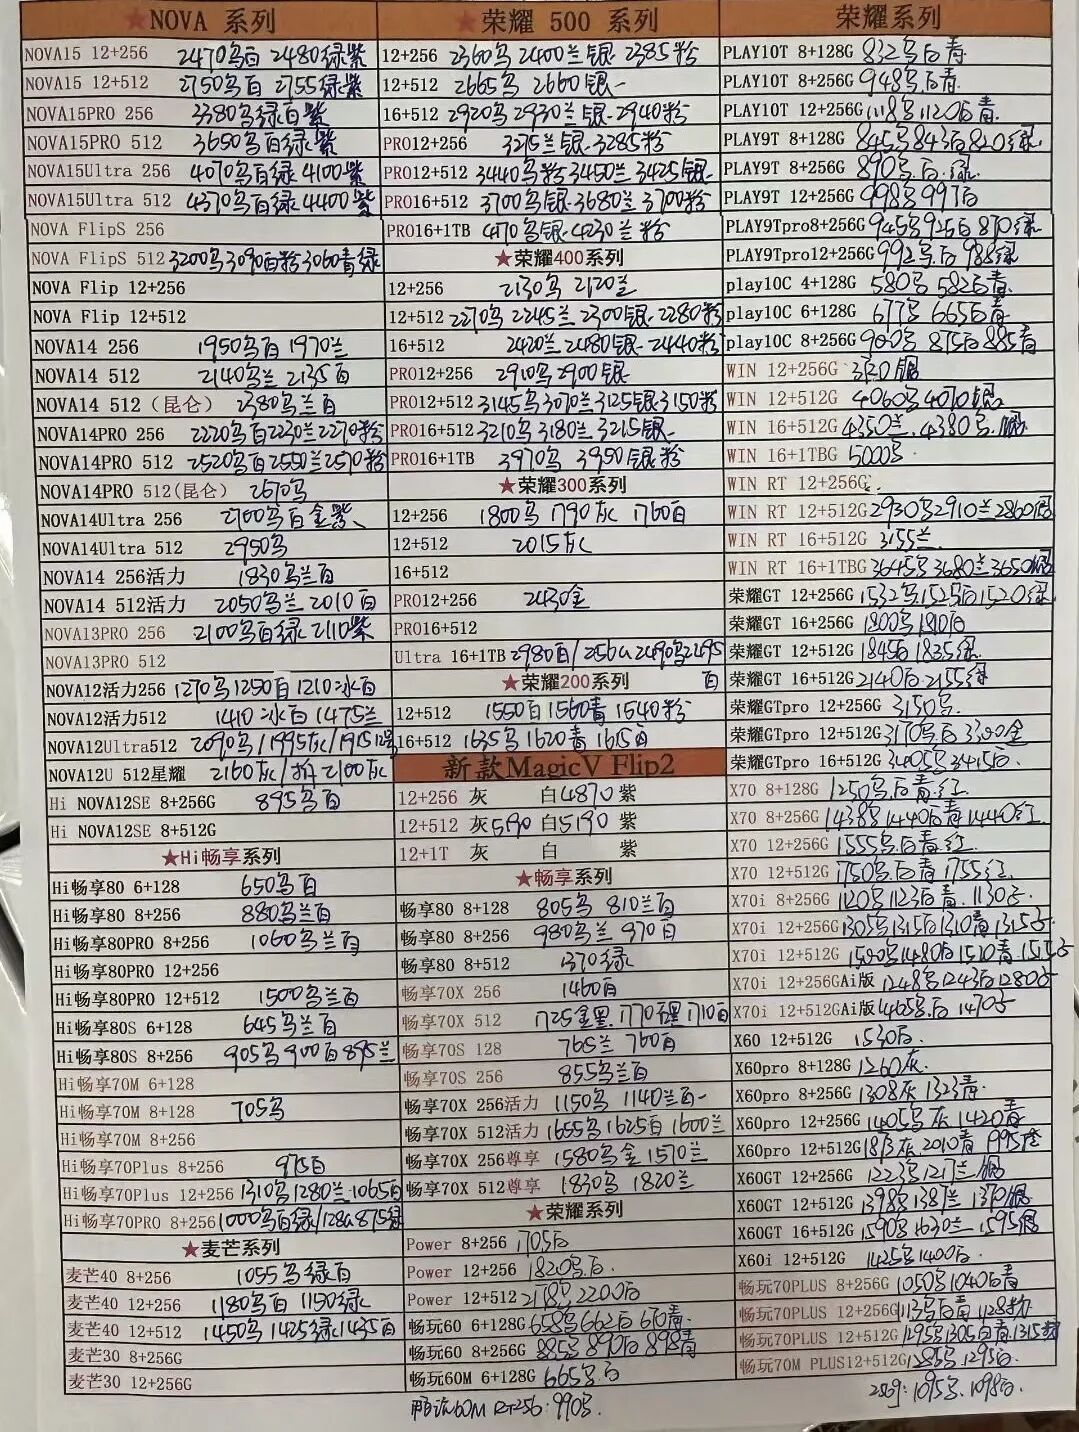 ★NOVA 系列
NOVA15 12+256 2470乌白 2480绿紫
NOVA15 12+512 2750乌白 2755绿紫
NOVA15PRO 256 3380乌绿白紫
NOVA15PRO 512 3650乌白绿紫
NOVA15Ultra 256 4070乌白绿 4100紫
NOVA15Ultra 512 4370乌白绿 4400紫
NOVA FlipS 256
NOVA FlipS 512 3200乌3090白粉3060青绿
NOVA Flip 12+256
NOVA Flip 12+512
NOVA14 256 1950乌白 1970兰
NOVA14 512 2140乌兰 2135白
NOVA14 512（昆仑） 2380乌兰白
NOVA14PRO 256 2220乌白2230兰2270粉
NOVA14PRO 512 2520乌白2550兰2570粉
NOVA14PRO 512(昆仑) 2670乌
NOVA14Ultra 256 2700乌白金紫
NOVA14Ultra 512 2950乌
NOVA14 256活力 1830乌兰白
NOVA14 512活力 2050乌兰 2010白
NOVA13PRO 256 2100乌白绿 2110紫
NOVA13PRO 512
NOVA12活力256 1270乌1250白 1210冰白
NOVA12活力512 1410冰白 1475兰
NOVA12Ultra512 2090乌/1995灰/1915
NOVA12U 512星耀 2160灰/拆2100灰
Hi NOVA12SE 8+256G 895乌白
Hi NOVA12SE 8+512G
★Hi畅享系列
Hi畅享80 6+128 650乌白
Hi畅享80 8+256 880乌兰白
Hi畅享80PRO 8+256 1060乌兰白
Hi畅享80PRO 12+256
Hi畅享80PRO 12+512 1500乌兰白
Hi畅享80S 6+128 645乌兰白
Hi畅享80S 8+256 905乌 900白 895兰
Hi畅享70M 6+128
Hi畅享70M 8+128 705乌
Hi畅享70M 8+256
Hi畅享70Plus 8+256 975白
Hi畅享70Plus 12+256 1310乌1280兰.1065白
Hi畅享70PRO 8+256 1000乌白绿/128G875绿
★麦芒系列
麦芒40 8+256 1055乌绿白
麦芒40 12+256 1180乌白 1150绿
麦芒40 12+512 1450乌 1425绿 1435白
麦芒30 8+256G
麦芒30 12+256G
★荣耀 500 系列
12+256 2360乌 2400兰银 2385粉
12+512 2665乌 2660银
16+512 2920乌 2930兰银 2940粉
PRO12+256 3275兰银 3285粉
PRO12+512 3440乌粉3450兰 3425银
PRO16+512 3700乌银 3680兰 3700粉
PRO16+1TB 4170乌银 4230兰粉
★荣耀400系列
12+256 2130乌 2120兰
12+512 2270乌 2245兰 2300银 2280粉
16+512 2420兰 2480银 2440粉
PRO12+256 2910乌 2900银
PRO12+512 3145乌3070兰3125银3150粉
PRO16+512 3210乌 3180兰 3215银
PRO16+1TB 3970乌 3950银粉
★荣耀300系列
12+256 1800乌 1790灰 1760白
12+512 2015灰
16+512
PRO12+256 2430金
PRO16+512
Ultra 16+1TB 2980白/256G2490乌2495白
★荣耀200系列
12+512 1550白 1560青 1540粉
16+512 1635乌 1620青 1615白
新款MagicV Flip2
12+256 灰 白4870 紫
12+512 灰5190 白5190 紫
12+1T 灰 白 紫
★畅享系列
畅享80 8+128 805乌 810兰白
畅享80 8+256 980乌兰 970白
畅享80 8+512 1370绿
畅享70X 256 1460白
畅享70X 512 1725金黑 1710白
畅享70S 128 765兰 760白
畅享70S 256 855乌兰白
畅享70X 256活力 1150乌 1140兰白
畅享70X 512活力 1655乌1625白1600兰
畅享70X 256尊享 1580乌金 1570兰
畅享70X 512尊享 1830乌 1820兰
★荣耀系列
Power 8+256 1705白
Power 12+256 1820乌.白.
Power 12+512 2200白
畅玩60 6+128G 658乌662白 670青
畅玩60 8+256G 885乌 890白 898青
畅玩60M 6+128G 665乌白
畅玩60M 256: 990乌.
荣耀系列
PLAY10T 8+128G 832乌白青
PLAY10T 8+256G 948乌.白青
PLAY10T 12+256G 1118乌1120白青.
PLAY9T 8+128G 845乌843白820绿
PLAY9T 8+256G 890乌.白.绿
PLAY9T 12+256G 998乌 997白
PLAY9Tpro8+256G 945乌925白 870绿
PLAY9Tpro12+256G 992乌.白 988绿
play10C 4+128G 580乌 582白青
play10C 6+128G 677乌 665白青
play10C 8+256G 900乌 875白885青
WIN 12+256G 银
WIN 12+512G 4060乌4070银
WIN 16+512G 4350兰.4380乌.银
WIN 16+1TBG 5000乌
WIN RT 12+256G
WIN RT 12+512G 2930乌2910兰2860银
WIN RT 16+512G 3155兰
WIN RT 16+1TBG 3645乌3680兰3650银
荣耀GT 12+256G 1532乌1525白1520绿
荣耀GT 16+256G 1800乌1810白
荣耀GT 12+512G 1845白1835绿
荣耀GT 16+512G 2140白2155绿
荣耀GTpro 12+256G 3150乌.
荣耀GTpro 12+512G 3170乌.白3300金
荣耀GTpro 16+512G 3405乌3415白.
X70 8+128G 1250乌白青.红
X70 8+256G 1438乌1440白青1440红
X70 12+256G 1555乌.白青.红
X70 12+512G 1750乌.白青 1755红
X70i 8+256G 1120乌1123白青.1130
X70i 12+256G 1305乌1315白1310青1315
X70i 12+512G 1500乌1480白1510青.1515
X70i 12+256GAi版 1248乌1243白1280
X70i 12+512GAi版 1465乌.白 1470
X60 12+512G 1530白.
X60pro 8+128G 1260灰
X60pro 8+256G 1308灰 1323青.
X60pro 12+256G 1405乌灰1420青
X60pro 12+512G 灰.2010青
X60GT 12+256G 1223乌1217兰.银
X60GT 12+512G 1398乌1387兰 1370银
X60GT 16+512G 1590乌1630兰.1595银
X60i 12+512G 1425乌1400白.
畅玩70PLUS 8+256G 1050乌1040白青
畅玩70PLUS 12+256G 1135乌白青 1128粉
畅玩70PLUS 12+512G 1295乌1305白青.1315粉
畅玩70M PLUS12+512G 1285乌.1295白.
256g: 1095乌.1098白.